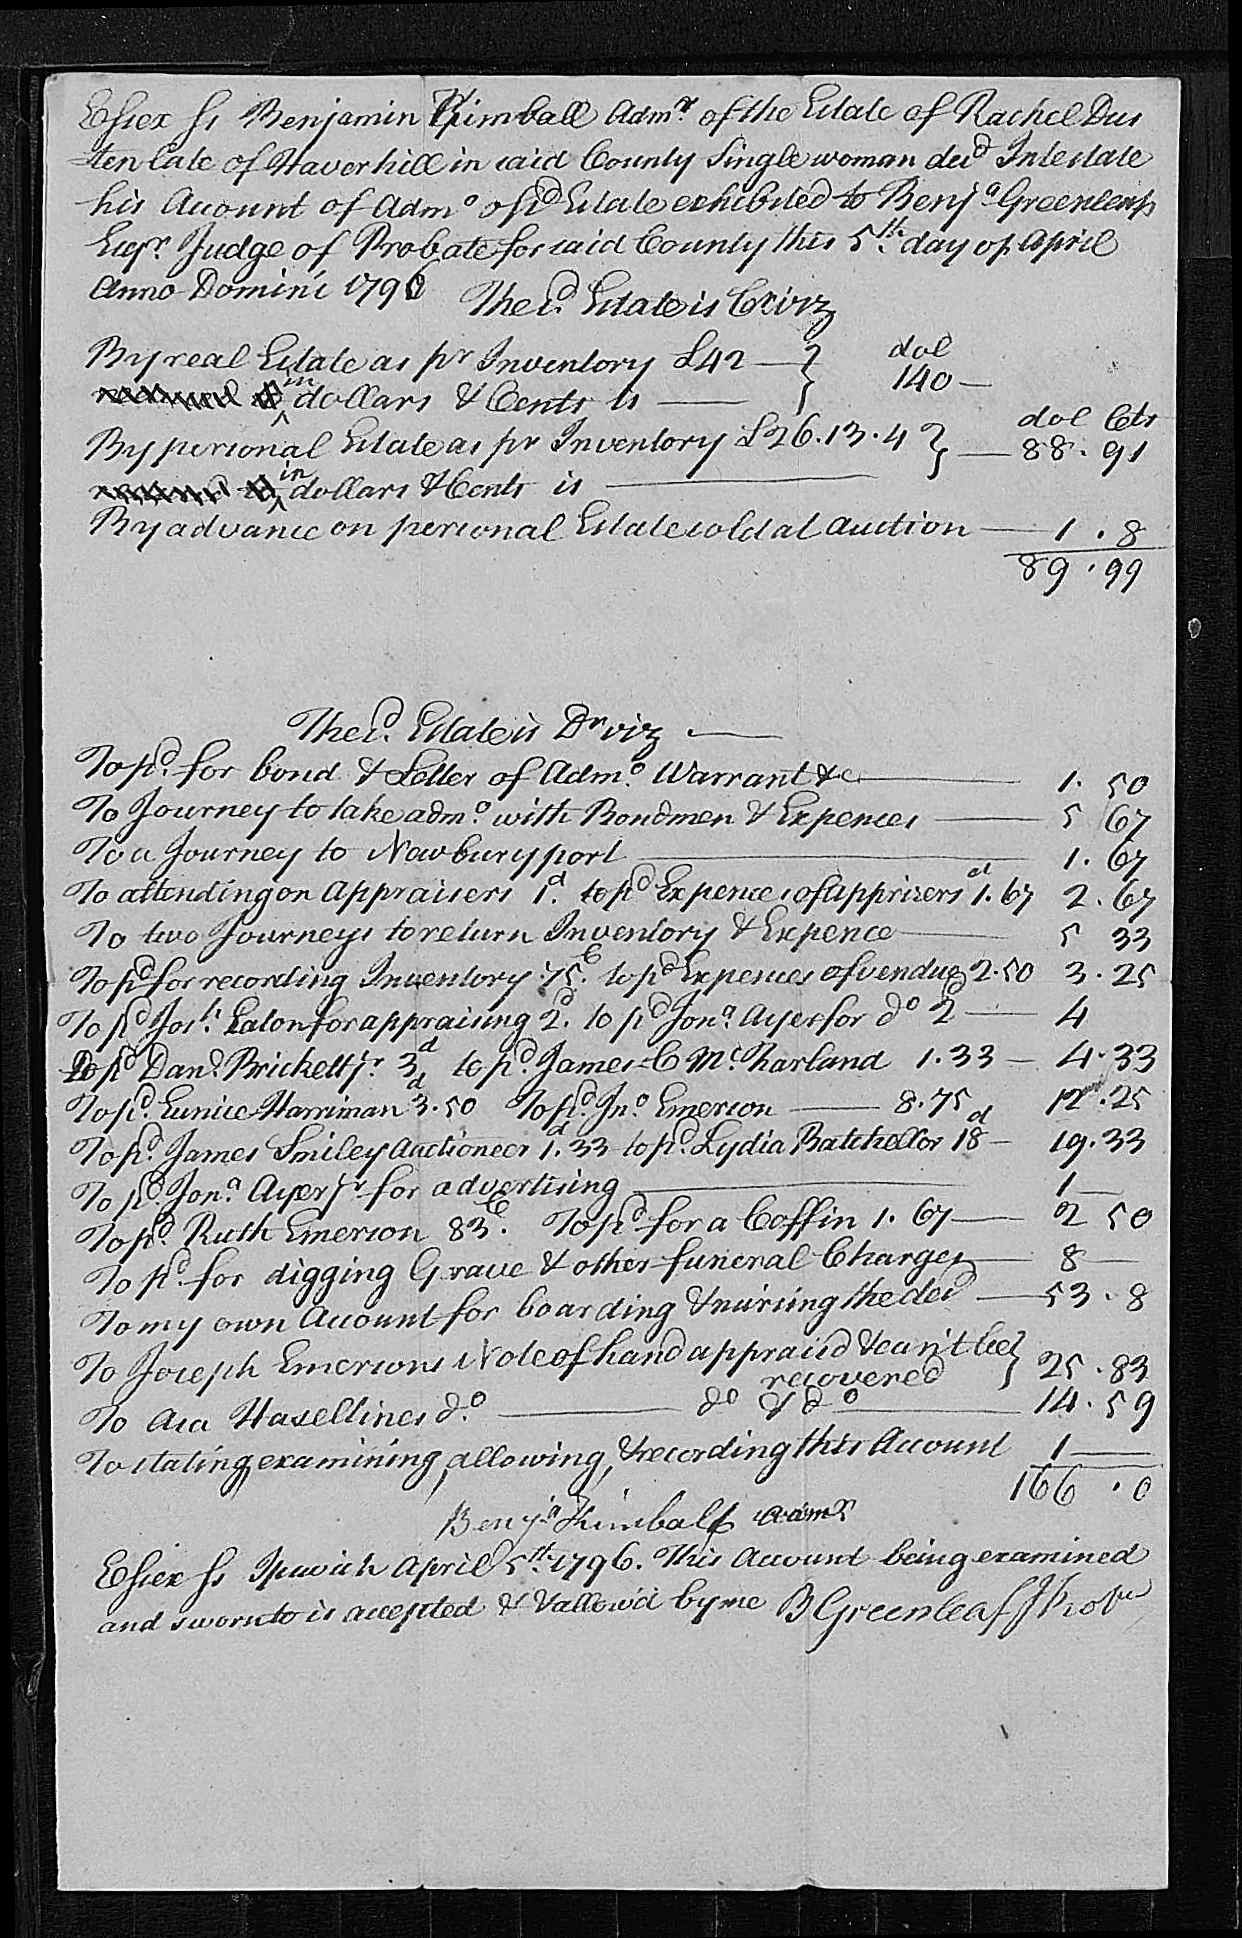 Essex ss Benjamin Kimball Admr. of the Estate of Rachel Dus
ten late of Haverhill in said County Single woman decd Intestate
his Account of Admo of sd Estate exhibited to Benja Greenleaf
Esqr. Judge of Probate for said County this 5th. day of April
Anno Domini 1796
The sd. Estate is Cr viz
By real Estate as pr Inventory £42 — dol
in dollars & Cents is — 140 —
dol Cts
By personal Estate as pr Inventory £26.13.4 — 88.91
in dollars & Cents is —
By advance on personal Estate sold at auction — 1.8
89.99
The sd. Estate is Dr viz —
To pd. for bond & Letter of Admo. Warrant &c. — 1.50
To Journey to take admo. with Bondmen & Expences — 5 67
To a Journey to Newburyport — 1.67
To attending on Appraisers 1d. to pd Expences of apprisers 1.67d 2.67
To two Journeys to return Inventory & Expence — 5 33
To pd for recording Inventory .75C. to pd Expences of vendue 2.50 3.25
To pd Josh. Eaton for appraising 2d. to pd Jona. Ayer for do 2d — 4
To pd Danl. Brickett jr. 3d to pd. James C McFharland 1.33 — 4.33
To pd. Eunice Harriman 3d.50 To pd. Jno Emerson — 8.75 12.25
To pd. James Smiley Auctioneer 1d.33 to pd. Lydia Batchellor 18d — 19.33
To pd Jona. Ayer jr for advertising — 1 —
To pd. Ruth Emerson 83C. To pd for a Coffin 1.67 — 2 50
To pd. for digging Grave & other funeral Charges — 8 —
To my own Account for boarding & nursing the decd — 53.8
To Joseph Emersons Note of hand appraisd & can't be
recovered 25.83
To Asa Haseltines do. — do & do — 14.59
To stating, examining, allowing, & recording this Account 1 —
166.0
Benja Kimball admr
Essex ss Ipswich April 5th. 1796. This Account being examined
and sworn to is accepted & Vallow'd by me B Greenleaf J Probe